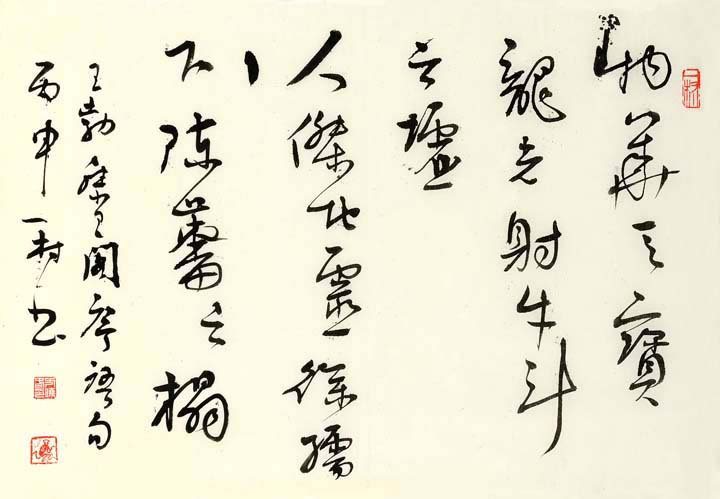 物華天寶
龍光射牛斗
之墟
人傑地靈徐孺
下陳蕃之榻
王勃滕王閣序句
丙申一村書